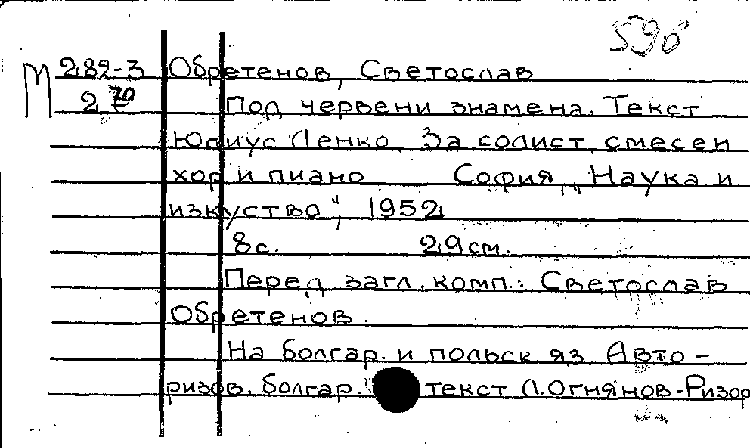 590
М 2.82-3 Обретенов, Светослав
2 70 Под червени знамена. Текст
Юлиус Ленко. За солист, смесен
хор и пиано София, „Наука и
изкуство“, 1952
8 с. 29 см.
Перед загл. комп.: Светослав
Обретенов.
На болгар. и польск яз Авто-
ризов. болгар. текст Л. Огнянов-Ризор